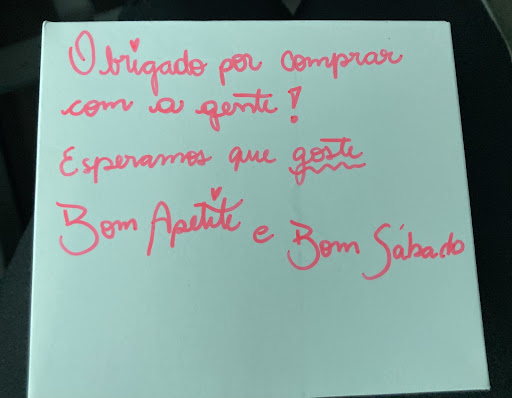 Obrigado por comprar
com a gente!
Esperamos que goste
Bom Apetite e Bom Sábado